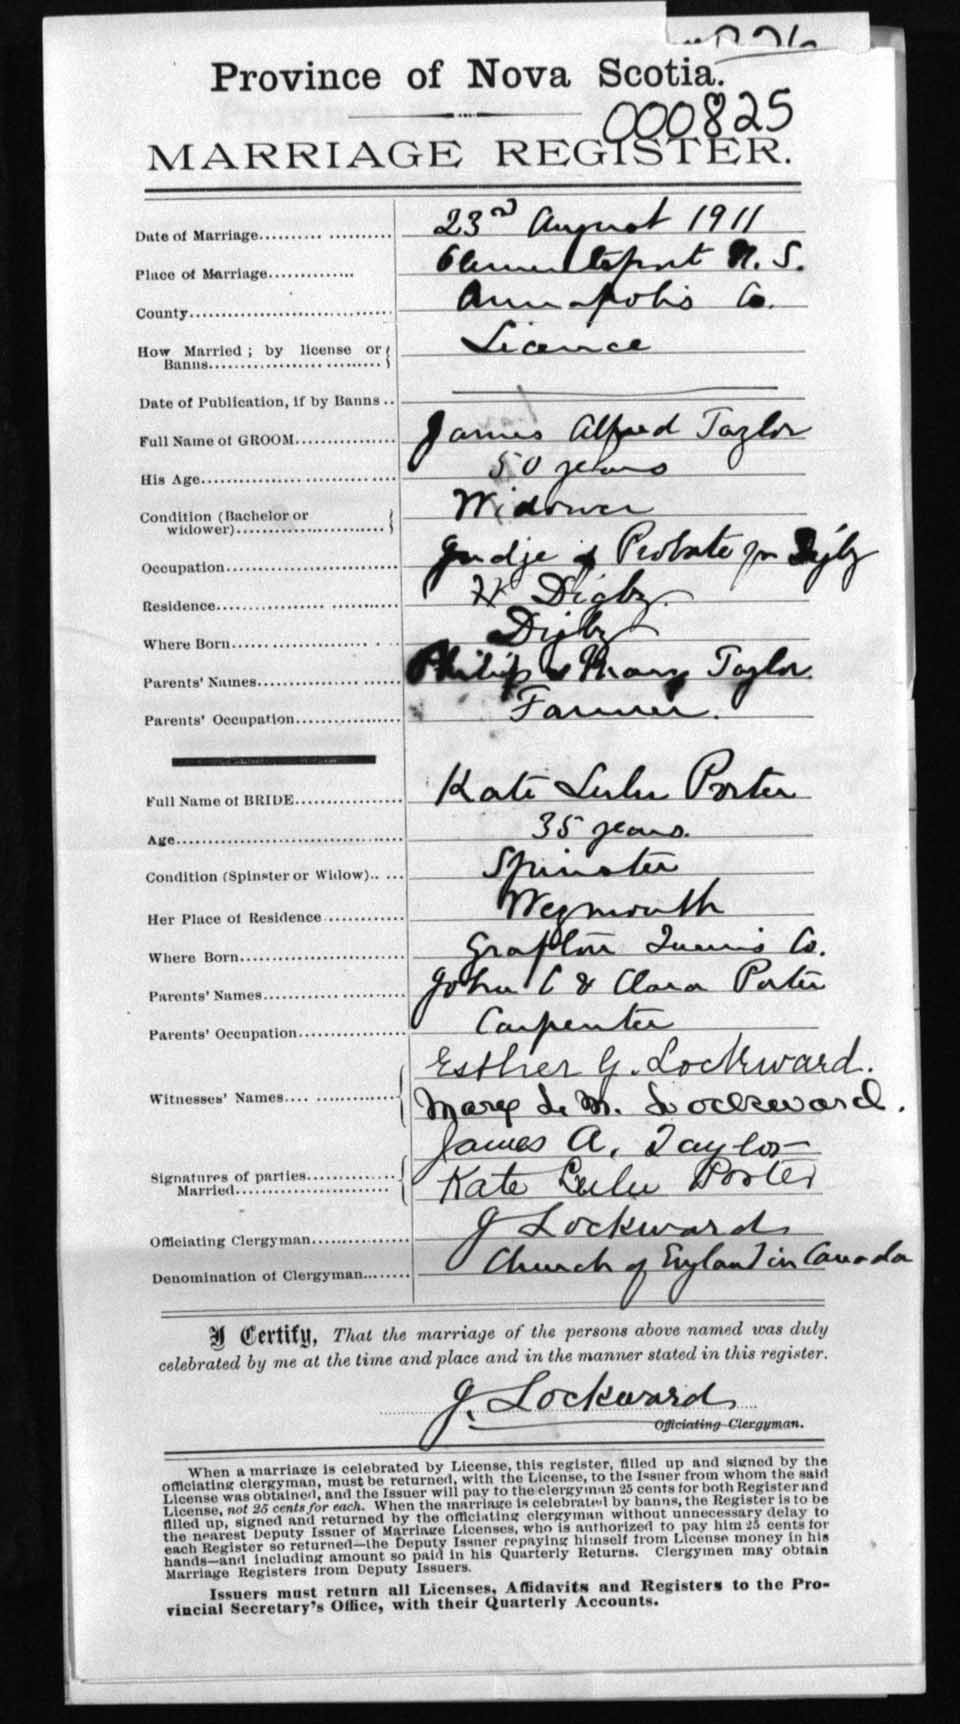 826
Province of Nova Scotia.
000825
MARRIAGE REGISTER.
Date of Marriage 23rd August 1911
Place of Marriage Clementsport N. S.
County Annapolis Co.
How Married ; by license or Licence
Banns
Date of Publication, if by Banns
Full Name of GROOM James Alfred Taylor
His Age 50 years
Condition (Bachelor or Widower
widower)
Occupation Judge of Probate for Digby
Residence Digby
Where Born Digby
Parents' Names Philip & Mary Taylor
Parents' Occupation Farmer.
Full Name of BRIDE Kate Lulu Porter
Age 35 years.
Condition (Spinster or Widow) Spinster
Her Place of Residence Weymouth
Where Born Grafton Queens Co.
Parents' Names John C & Clara Porter
Parents' Occupation Carpenter
Esther G. Lockward.
Witnesses' Names Mary de M. Lockward.
James A. Taylor
Signatures of parties Kate Lulu Porter
Married
Officiating Clergyman J Lockward
Denomination of Clergyman Church of England in Canada
I Certify, That the marriage of the persons above named was duly
celebrated by me at the time and place and in the manner stated in this register.
J. Lockward
Officiating Clergyman.
When a marriage is celebrated by License, this register, filled up and signed by the
officiating clergyman, must be returned, with the License, to the Issuer from whom the said
License was obtained, and the Issuer will pay to the clergyman 25 cents for both Register and
License, not 25 cents for each. When the marriage is celebrated by banns, the Register is to be
filled up, signed and returned by the officiating clergyman without unnecessary delay to
the nearest Deputy Issuer of Marriage Licenses, who is authorized to pay him 25 cents for
each Register so returned—the Deputy Issuer repaying himself from License money in his
hands—and including amount so paid in his Quarterly Returns. Clergymen may obtain
Marriage Registers from Deputy Issuers.
Issuers must return all Licenses, Affidavits and Registers to the Pro-
vincial Secretary's Office, with their Quarterly Accounts.